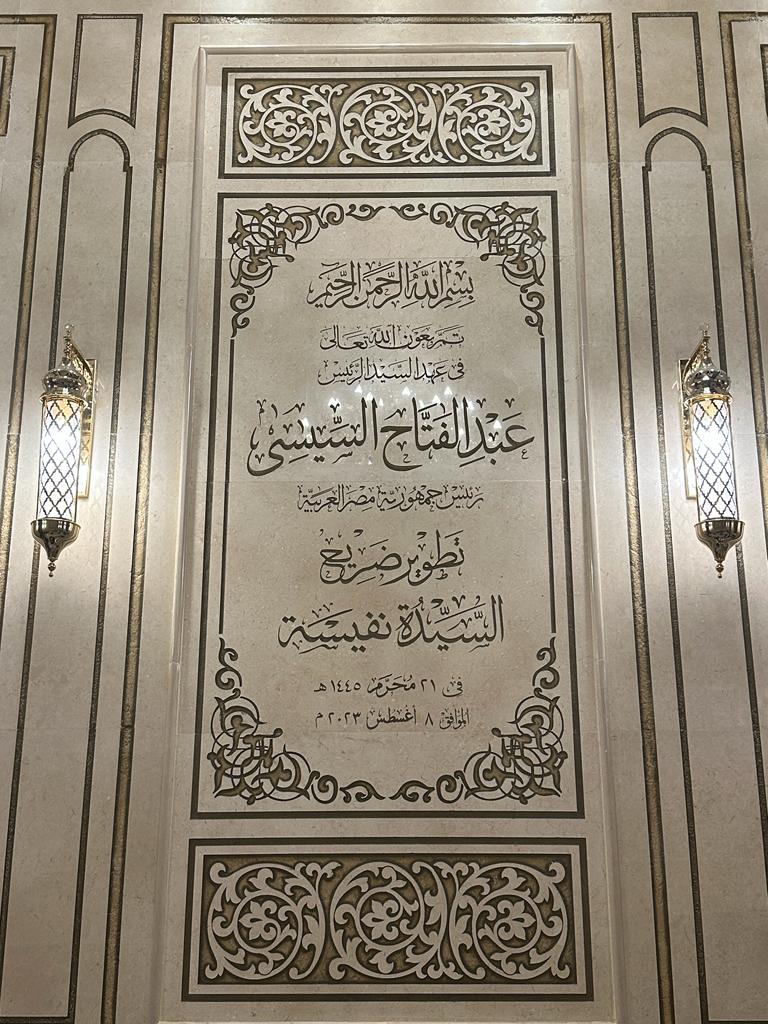 بسم الله الرحمن الرحيم
تم بعون الله تعالى
فى عهد السيد الرئيس
عبد الفتاح السيسى
رئيس جمهورية مصر العربية
تطوير ضريح
السيدة نفيسة
فى ٢١ محرم ١٤٤٥ هـ
الموافق ٨ أغسطس ٢٠٢٣ م